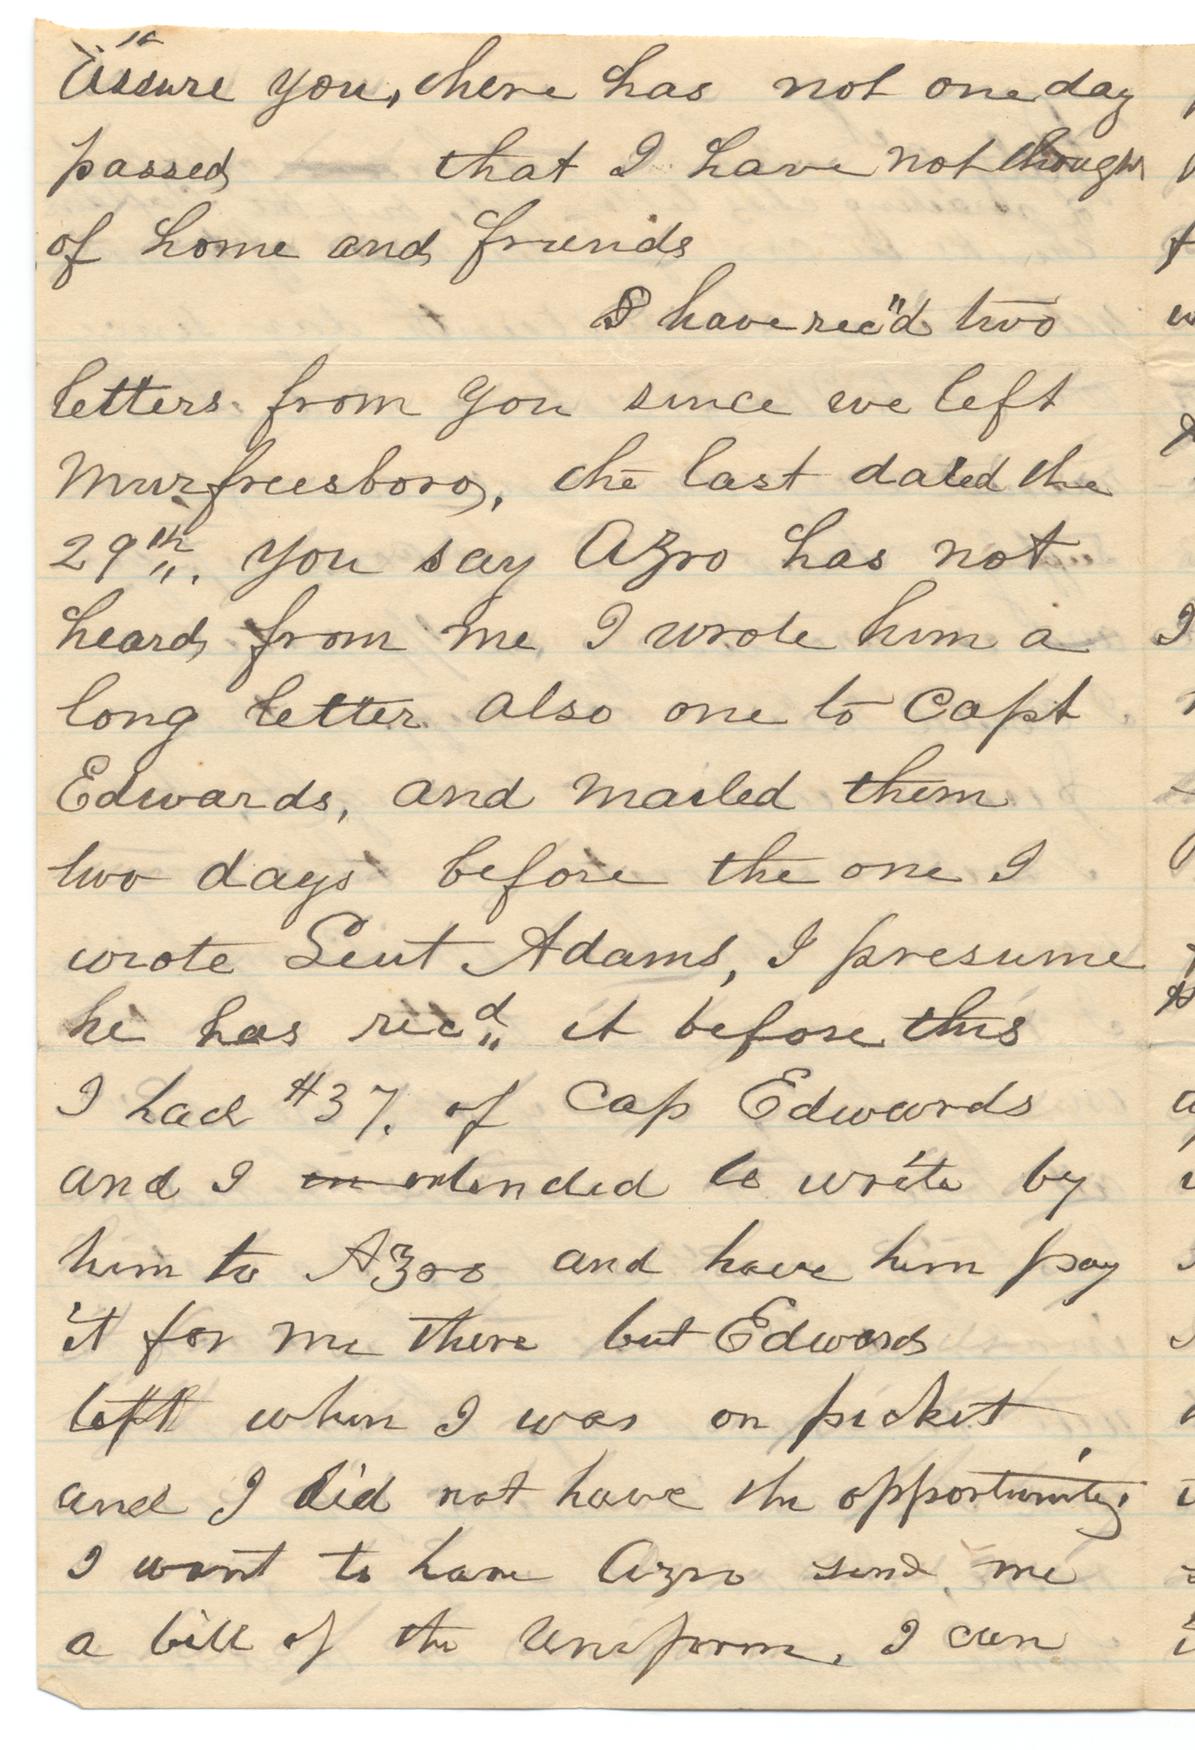 Assure you, there has not one day
passed that I have not though
of home and friends
I have rec"d two
letters from you since we left
Murfreesboro, the last dated the
29th,, you say Azro has not
heard from me I wrote him a
long letter also one to Capt
Edwards, and mailed them
two days before the one I
wrote Leut Adams, I presume
he has recd,, it before this
I had #37. of Cap Edwards
and I in intended to write by
him to Azro and have him pay
it for me there but Edwards
left when I was on picket
and I did not have the opportunity
I want to have Azro send me
a bill of the Uniform. I can